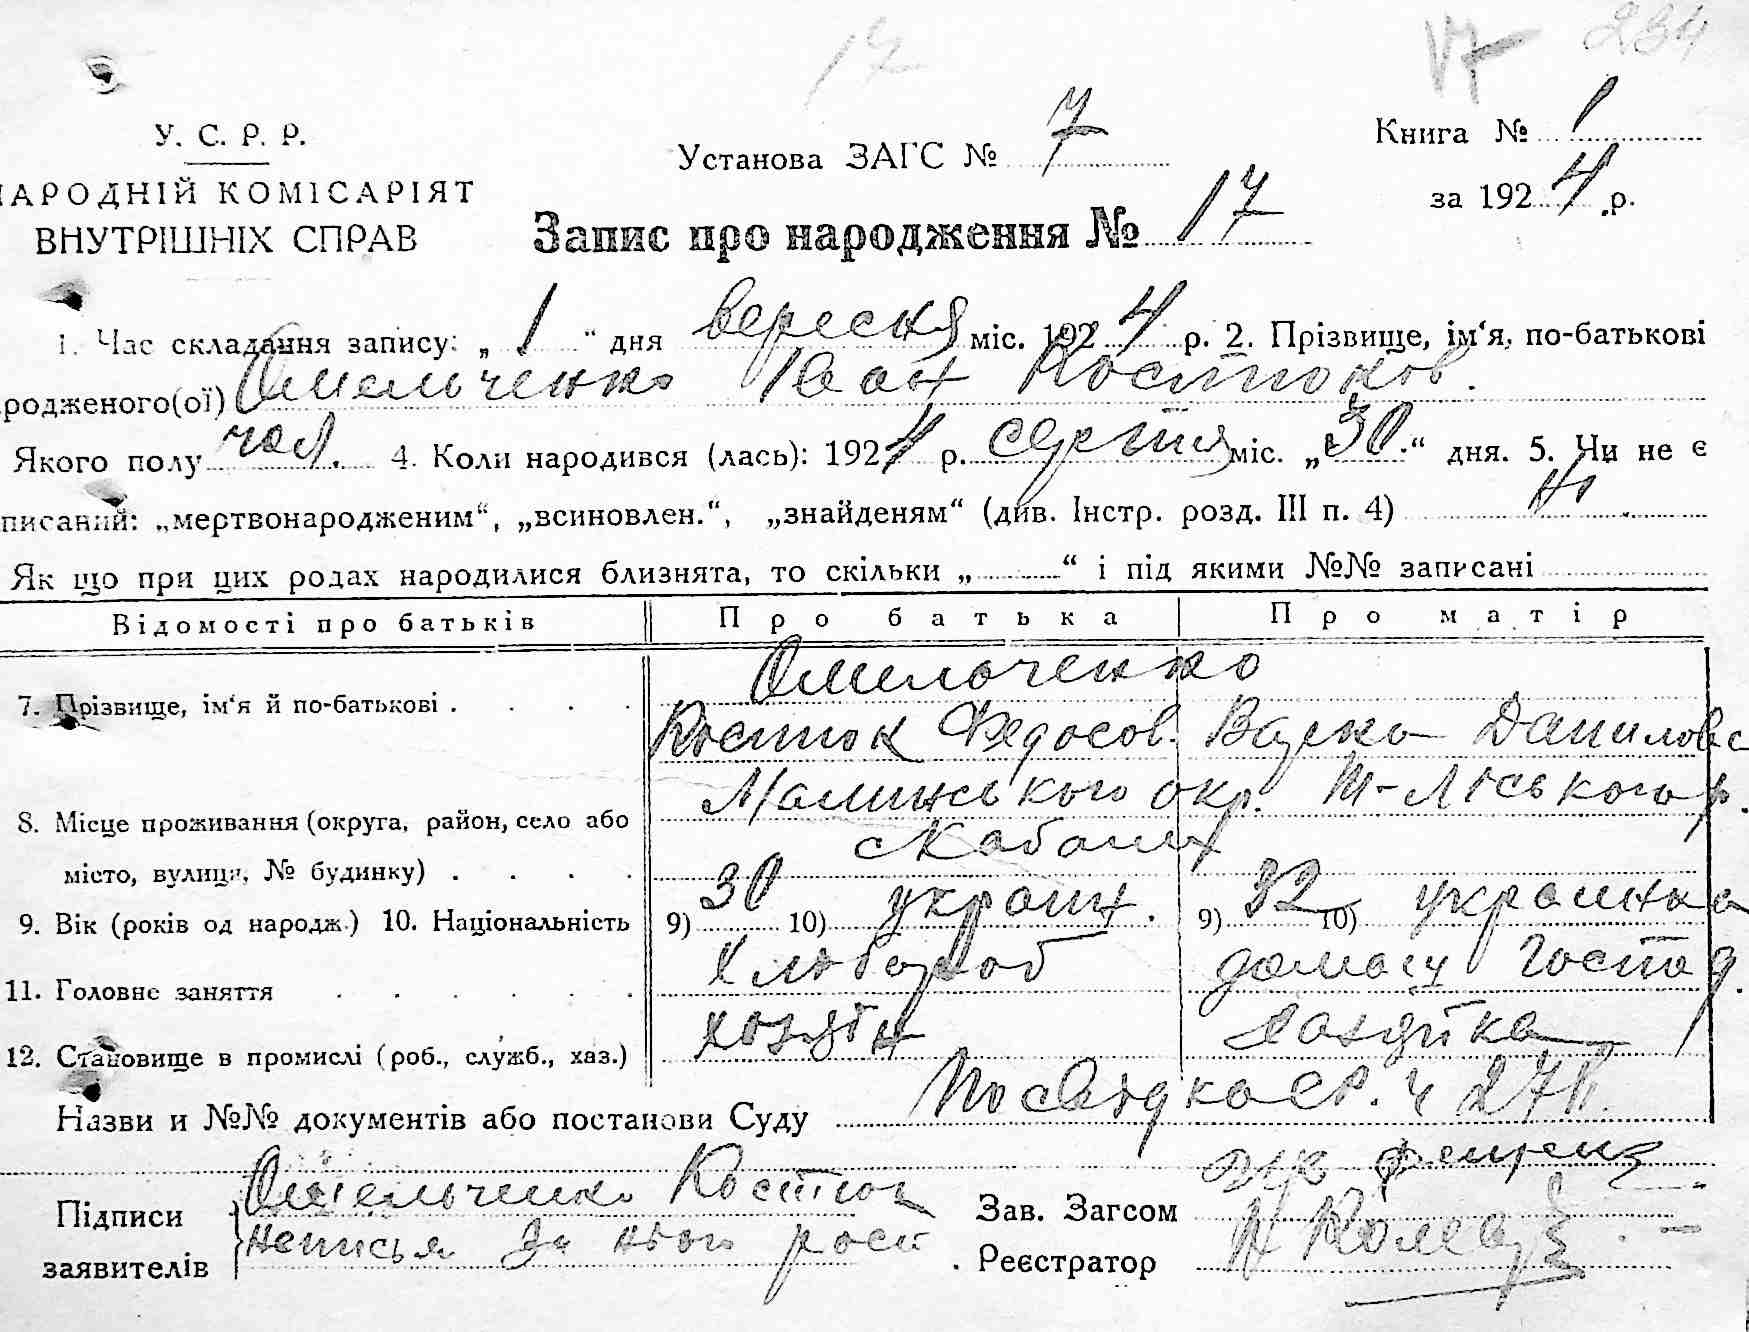 17 17 234
У. С. Р. Р.
НАРОДНІЙ КОМІСАРІЯТ
ВНУТРІШНІХ СПРАВ
Установа ЗАГС № 7
Книга № 1
за 1924 р.
Запис про народження № 17
1. Час складання запису: „ 1 “ дня вересня міс. 1924 р. 2. Прізвище, ім‘я, по-батькові
родженого(ої) Омельченко Іван Костюков.
Якого полу чол. 4. Коли народився (лась): 1924 р. серпня міс. „30.“ дня. 5. Чи не є
писаний: „мертвонародженим“, „всиновлен.“, „знайденям“ (див. Інстр. розд. III п. 4) Ні.
Як що при цих родах народилися близнята, то скільки „ “ і під якими №№ записані
Відомості про батьків Про батька Про матір
Омельченко
7. Прізвище, ім‘я й по-батькові . . . . Костюк Федосов. Варка Данилов
Малинського окр. ІІІ-Ліського р.
8. Місце проживання (округа, район, село або
с Кабани
місто, вулиця, № будинку) . . . .
9. Вік (років од народж.) 10. Національність 9) 30 10) україн. 9) 32 10) українка
11. Головне заняття . . . . . . Хлібороб домаш господ.
12. Становище в промислі (роб., служб., хаз.) хозяїн хазяйка
Назви и №№ документів або постанови Суду Посвідка с.р. ч 271
Підписи
заявителів
Омельченко Костюк
Неписьм За нього росп
Зав. Загсом
Реєстратор